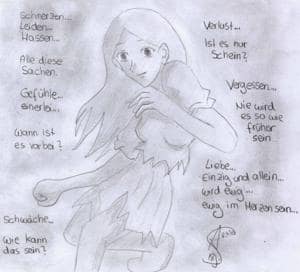 Schmerzen...
Leiden...
Hassen...
Alle diese
Sachen.
Gefühle...
einerlei...
Wann ist
es vorbei?
Schwäche...
wie kann
das sein?
Verlust...
Ist es nur
Schein?
Vergessen...
Nie wird
es so wie
früher
sein
Liebe...
Einzig und allein...
wird ewig...
ewig im Herzen sein...